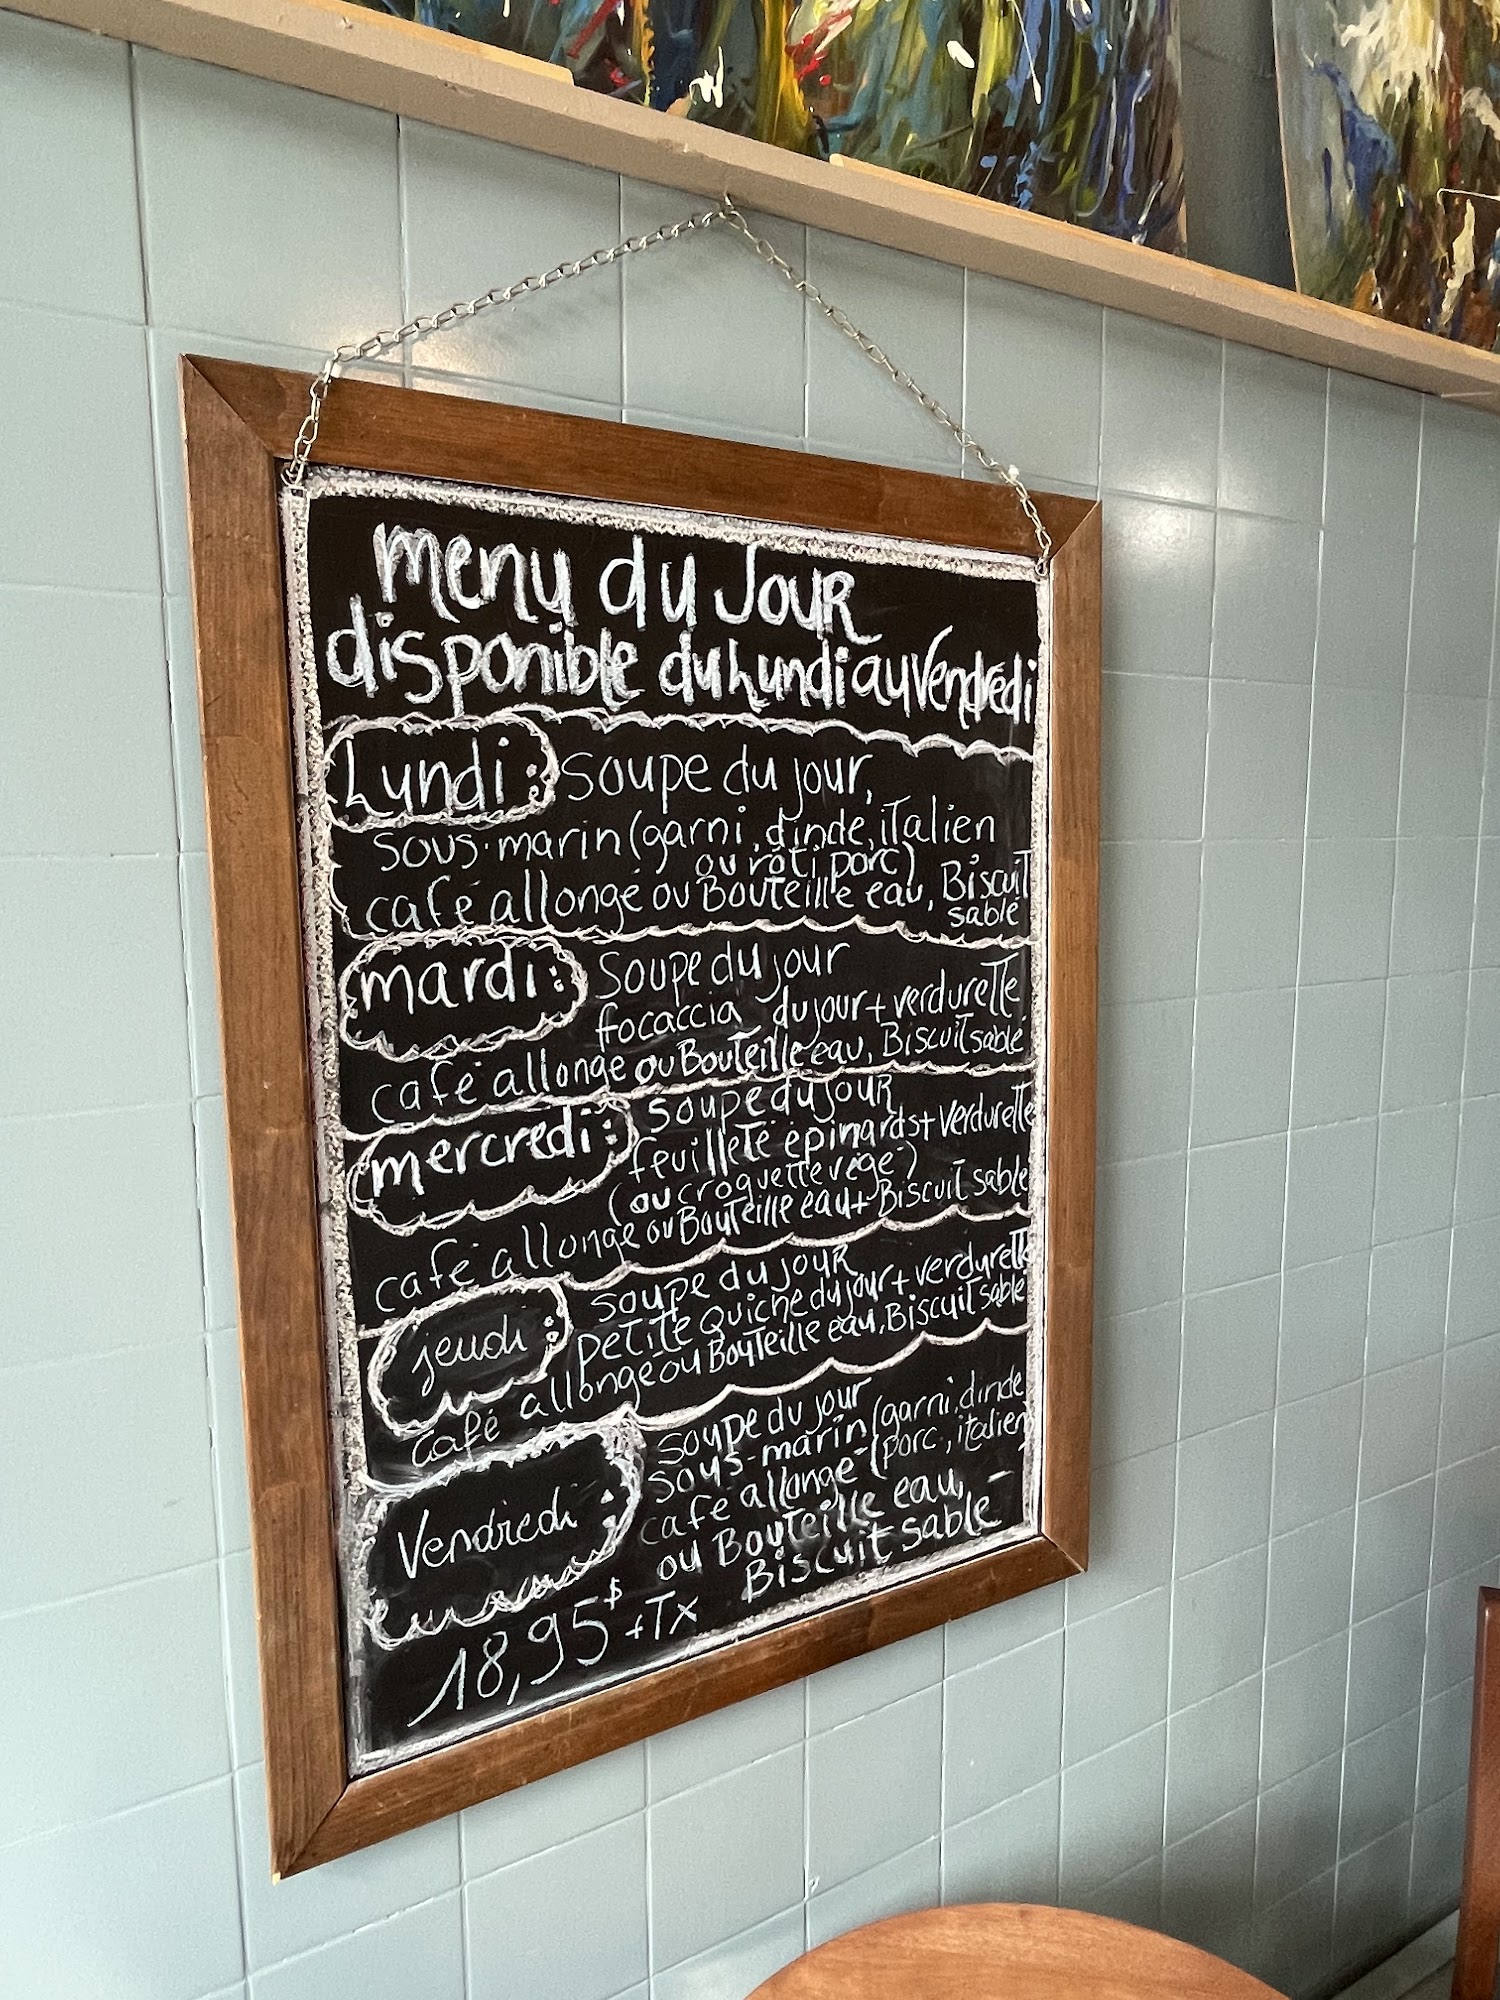 menu du Jour
disponible du Lundi au Vendredi
Lundi : soupe du jour,
sous-marin (garni, dinde, italien
ou rôti porc)
café allongé ou Bouteille eau, Biscuit
sablé
mardi : soupe du jour
focaccia du jour + verdurette
café allongé ou Bouteille eau, Biscuit sablé
mercredi : soupe du jour
feuilleté épinards + verdurette
(ou croquette végé)
café allongé ou Bouteille eau + Biscuit sablé
jeudi : soupe du jour
petite quiche du jour + verdurette
café allongé ou Bouteille eau, Biscuit sablé
Vendredi : soupe du jour
sous-marin (garni, dinde
café allongé - (porc, italien)
ou Bouteille eau, -
Biscuit sablé
18,95$ +Tx